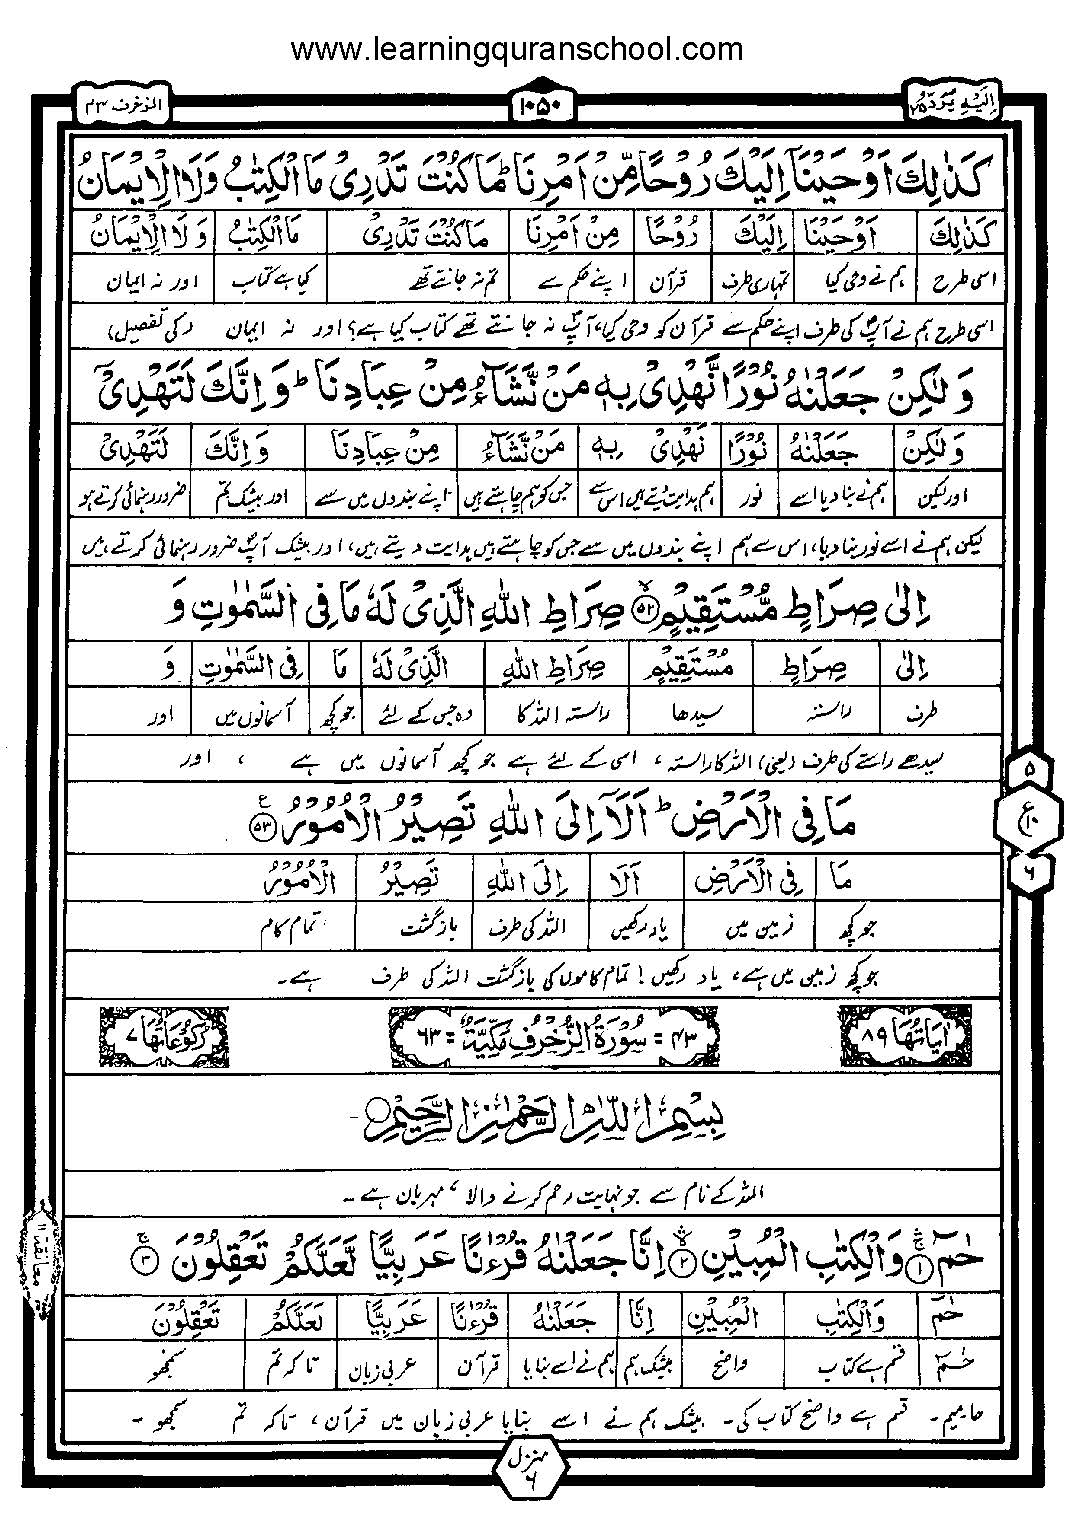 www.learningquranschool.com
اِلَیْہِ یُرَدُّ ۲۵
۱۰۵۰
الزخرف ۴۳
كَذٰلِكَ اَوْحَيْنَاۤ اِلَيْكَ رُوْحًا مِّنْ اَمْرِنَا ؕ مَا كُنْتَ تَدْرِىْ مَا الْكِتٰبُ وَلَا الْاِيْمَانُ
كَذٰلِكَ اَوْحَيْنَا اِلَيْكَ رُوْحًا مِنْ اَمْرِنَا مَا كُنْتَ تَدْرِىْ مَا الْكِتٰبُ وَ لَا الْاِيْمَانُ
اسی طرح ہم نے وحی کیا تمہاری طرف قرآن اپنے حکم سے تم نہ جانتے تھے کیا ہے کتاب اور نہ ایمان
اسی طرح ہم نے آپؐ کی طرف اپنے حکم سے قرآن کو وحی کیا، آپؐ نہ جانتے تھے کتاب کیا ہے؟ اور نہ ایمان (کی تفصیل)
وَ لٰكِنْ جَعَلْنٰهُ نُوْرًا نَّهْدِىْ بِهٖ مَنْ نَّشَآءُ مِنْ عِبَادِنَا ؕ وَ اِنَّكَ لَتَهْدِىْۤ
وَ لٰكِنْ جَعَلْنٰهُ نُوْرًا نَهْدِىْ بِهٖ مَنْ نَّشَآءُ مِنْ عِبَادِنَا وَ اِنَّكَ لَتَهْدِىْ
اور لیکن ہم نے بنا دیا اسے نور ہم ہدایت دیتے ہیں اس سے جس کو ہم چاہتے ہیں اپنے بندوں میں سے اور بیشک تم ضرور رہنمائی کرتے ہو
لیکن ہم نے اسے نور بنا دیا، اس سے ہم اپنے بندوں میں سے جس کو چاہتے ہیں ہدایت دیتے ہیں، اور بیشک آپؐ ضرور رہنمائی کرتے ہیں
اِلٰى صِرَاطٍ مُّسْتَقِيْمٍ ۙ﴿۵۲﴾ صِرَاطِ اللّٰهِ الَّذِىْ لَهٗ مَا فِى السَّمٰوٰتِ وَ
اِلٰى صِرَاطٍ مُسْتَقِيْمٍ صِرَاطِ اللّٰهِ الَّذِىْ لَهٗ مَا فِى السَّمٰوٰتِ وَ
طرف راستہ سیدھا راستہ اللہ کا وہ جس کے لئے جو کچھ آسمانوں میں اور
سیدھے راستے کی طرف (یعنی) اللہ کا راستہ، اسی کے لئے ہے جو کچھ آسمانوں میں ہے ، اور
۵
ع
۱۰
۶
مَا فِى الْاَرْضِ ؕ اَلَاۤ اِلَى اللّٰهِ تَصِيْرُ الْاُمُوْرُ ﴿۵۳﴾ ع
مَا فِى الْاَرْضِ اَلَا اِلَى اللّٰهِ تَصِيْرُ الْاُمُوْرُ
جو کچھ زمین میں یاد رکھیں اللہ کی طرف بازگشت تمام کام
جو کچھ زمین میں ہے، یاد رکھیں! تمام کاموں کی بازگشت اللہ کی طرف ہے۔
اٰیَاتُهَا ۸۹
۴۳ = سُوْرَةُ الزُّخْرُفِ مَكِّيَّةٌ = ۶۳
رُكُوْعَاتُهَا ۷
بِسْمِ اللّٰهِ الرَّحْمٰنِ الرَّحِيْمِ
اللہ کے نام سے جو نہایت رحم کرنے والا ، مہربان ہے ۔
حٰمٓ ۚۛ﴿۱﴾ وَالْكِتٰبِ الْمُبِيْنِ ۙۛ﴿۲﴾ اِنَّا جَعَلْنٰهُ قُرْءٰنًا عَرَبِيًّا لَّعَلَّكُمْ تَعْقِلُوْنَ ۚ﴿۳﴾
معانقة ۱۱
حٰمٓ وَالْكِتٰبِ الْمُبِيْنِ اِنَّا جَعَلْنٰهُ قُرْءٰنًا عَرَبِيًّا لَعَلَّكُمْ تَعْقِلُوْنَ
حٰمٓ قسم ہے کتاب واضح بیشک ہم ہم نے اسے بنایا قرآن عربی زبان تا کہ تم سمجھو
حا میم۔ قسم ہے واضح کتاب کی۔ بیشک ہم نے اسے بنایا عربی زبان میں قرآن، تا کہ تم سمجھو ۔
منزل
۶